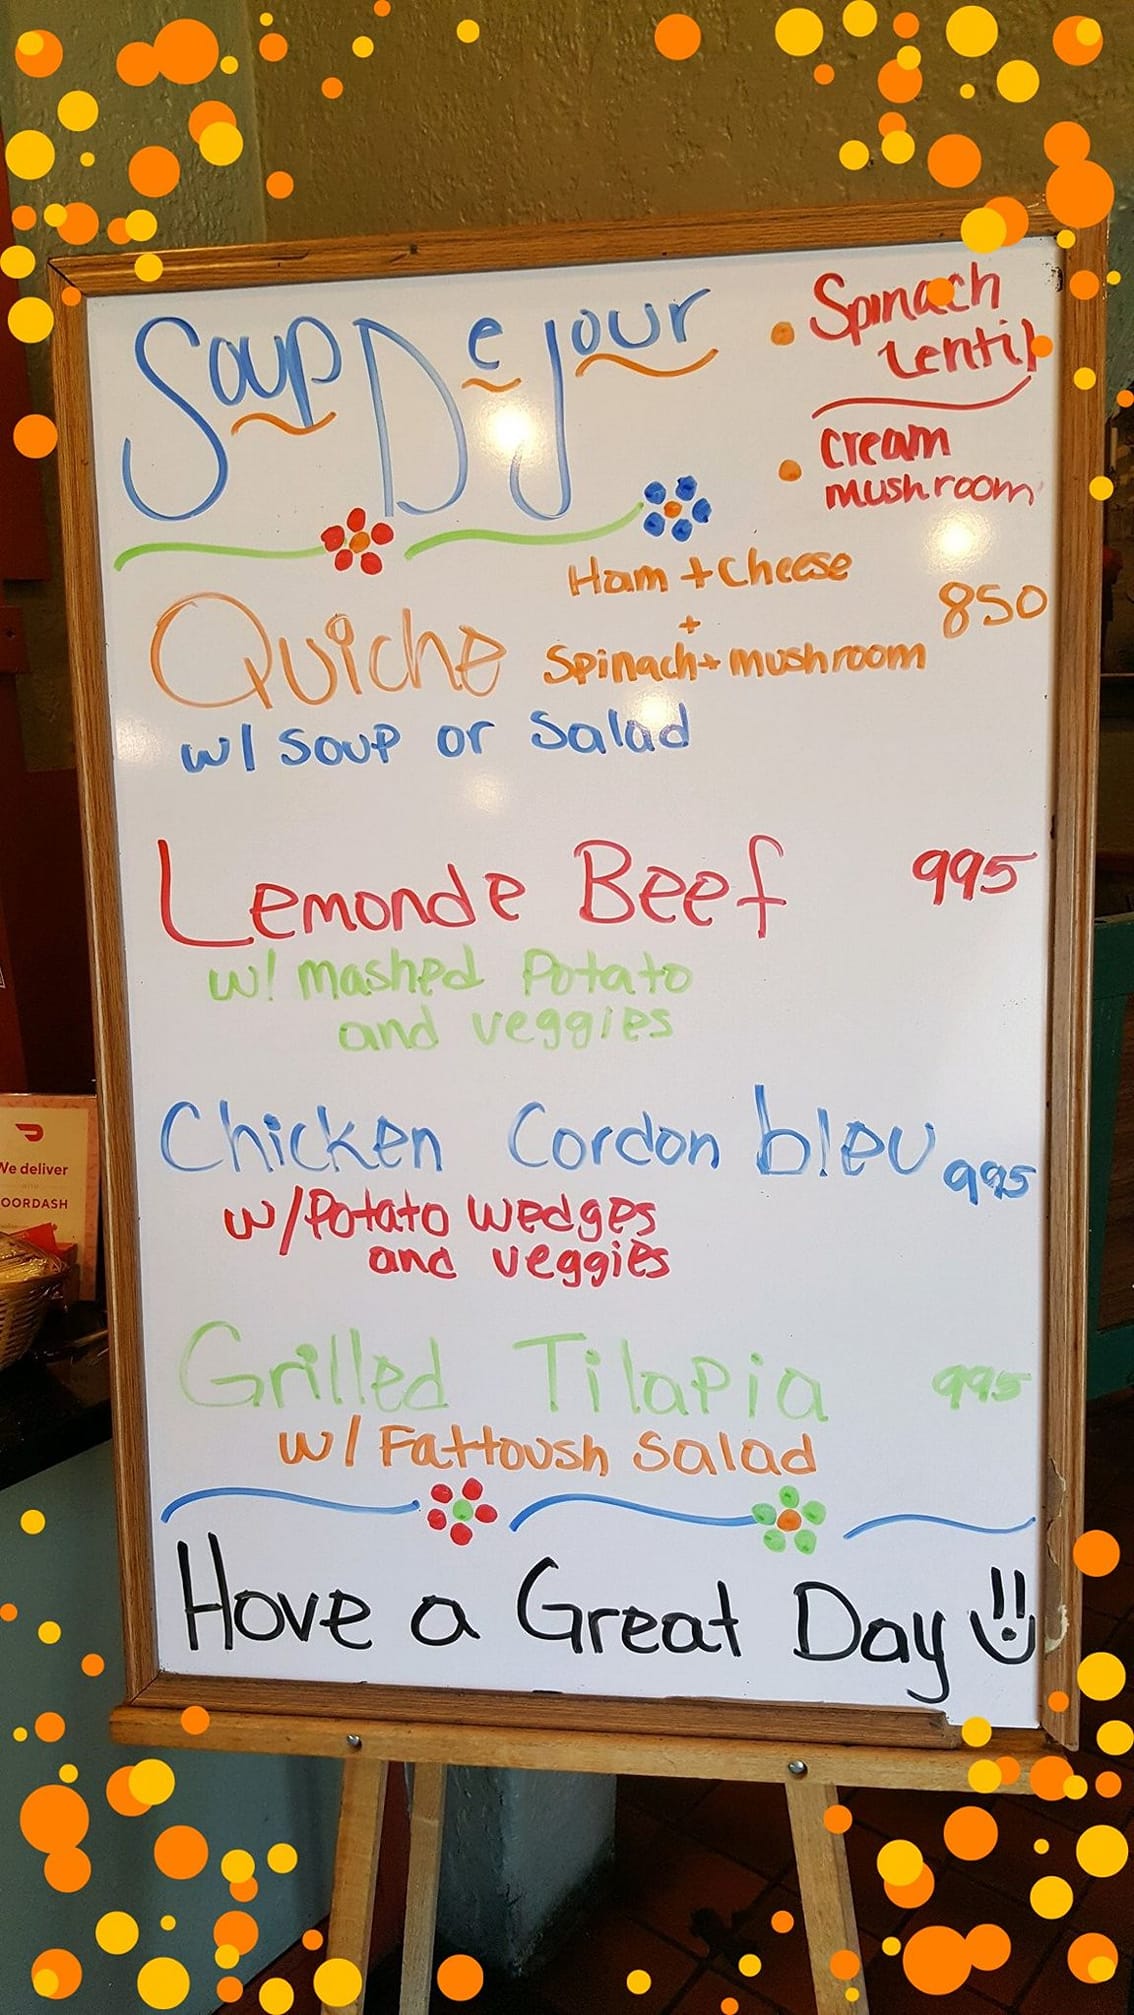 Soup De Jour
Spinach
Lentil
cream
mushroom
Ham + Cheese
+
Quiche
Spinach + mushroom
850
w/ Soup or Salad
Lemonde Beef 995
w/ mashed Potato
and veggies
Chicken Cordon bleu 995
w/ Potato wedges
and veggies
Grilled Tilapia 995
w/ Fattoush Salad
Have a Great Day
We deliver
OORDASH